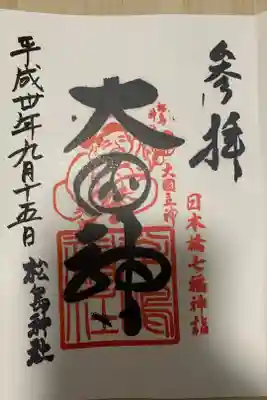 参拝
日本橋七福神詣
松島神社
大國主神
大国神
平成卅年九月十五日
松島神社